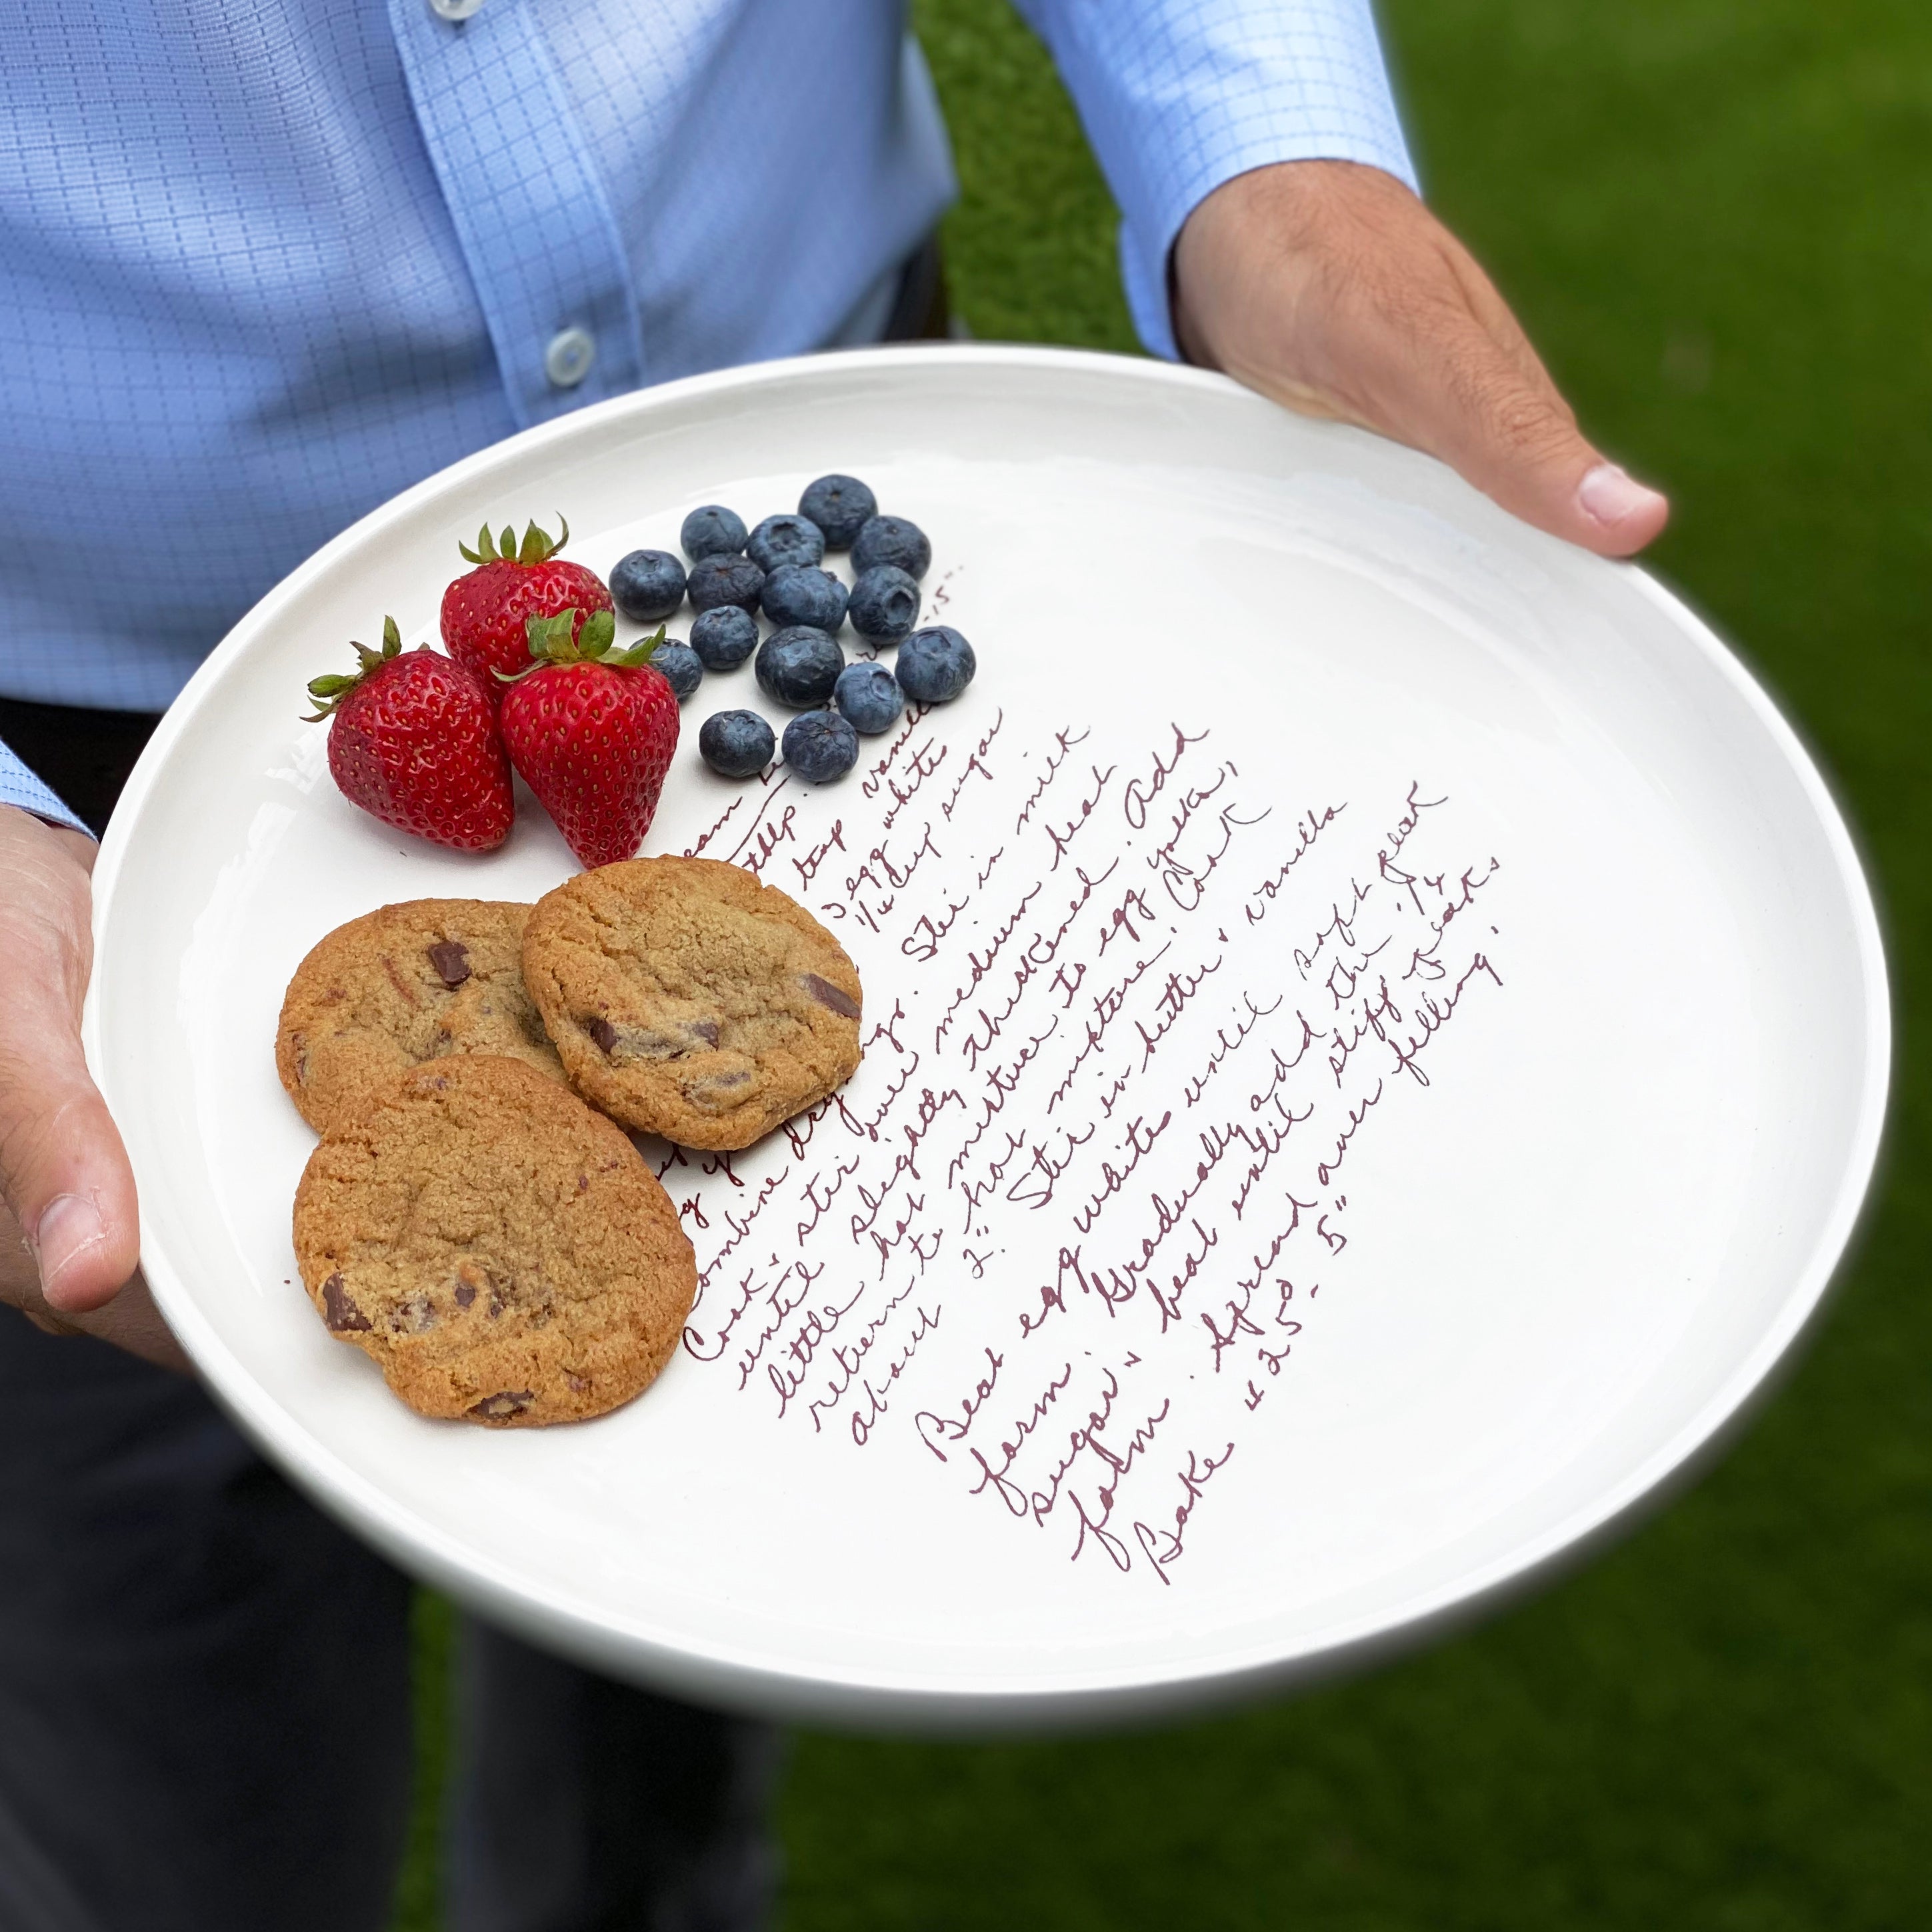 15"
vanilla
eam
tblp.
tsp
3 egg whites
1/4 cup sugar
ombine dry ngs. Stir in milk
Cook & stir over medium heat
until slightly thickened. Add
little hot mixture to egg yolks,
return to hot mixture. Cook
about 2". Stir in butter & vanilla
Beat egg whites until soft peak
form. Gradually add the 1/4
sugar & beat until stiff peaks
form. Spread over filling.
Bake 425° - 5"